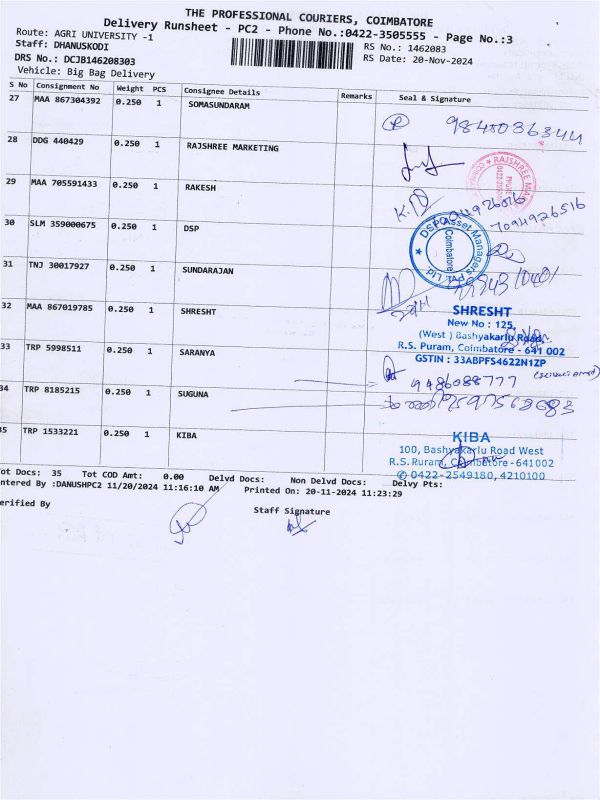 THE PROFESSIONAL COURIERS, COIMBATORE
Delivery Runsheet - PC2 - Phone No.:0422-3505555 - Page No.:3
Route: AGRI UNIVERSITY -1
RS No.: 1462083
Staff: DHANUSKODI
RS Date: 20-Nov-2024
DRS No.: DCJB146208303
Vehicle: Big Bag Delivery
S No Consignment No Weight PCS Consignee Details Remarks Seal & Signature
27 MAA 867304392 0.250 1 SOMASUNDARAM
28 DDG 440429 0.250 1 RAJSHREE MARKETING
RAJSHREE
29 MAA 705591433 0.250 1 RAKESH
7094926516
30 SLM 359000675 0.250 1 DSP
DSP Asset Managers Pvt Ltd
Coimbatore
31 TNJ 30017927 0.250 1 SUNDARAJAN
32 MAA 867019785 0.250 1 SHRESHT
SHRESHT
New No : 125,
(West ) Bashyakarlu Road,
R.S. Puram, Coimbatore - 641 002
GSTIN : 33ABPFS4622N1ZP
33 TRP 5998511 0.250 1 SARANYA
9486088777
34 TRP 8185215 0.250 1 SUGUNA
35 TRP 1533221 0.250 1 KIBA
KIBA
100, Bashyakarlu Road West
R.S.Puram, Coimbatore - 641002
0422-2549180, 4210100
Tot Docs: 35 Tot COD Amt: 0.00 Delvd Docs: Non Delvd Docs: Delvy Pts:
ntered By :DANUSHPC2 11/20/2024 11:16:10 AM Printed On: 20-11-2024 11:23:29
erified By
Staff Signature